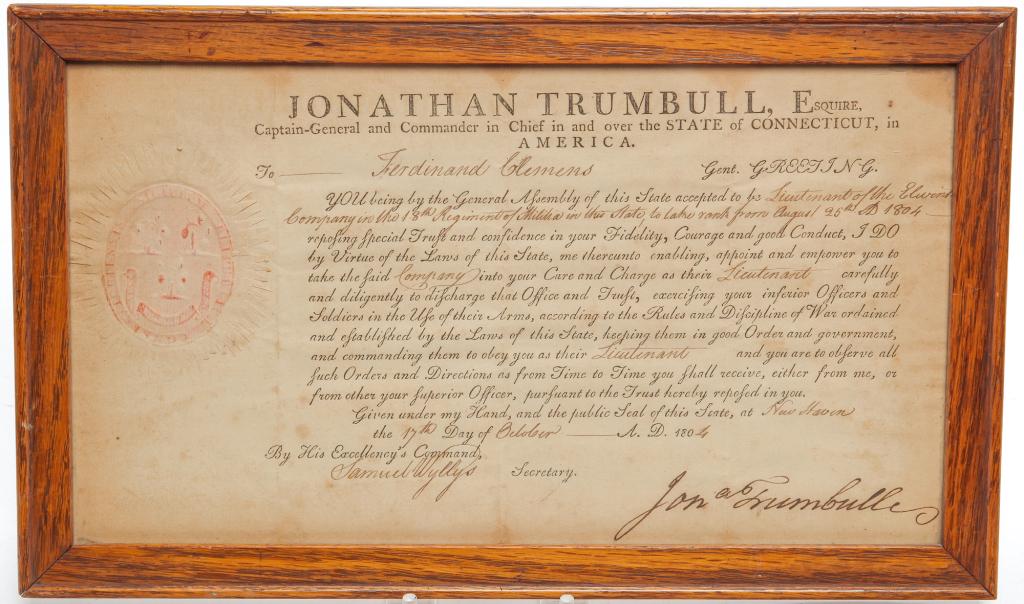 JONATHAN TRUMBULL, ESQUIRE,
Captain-General and Commander in Chief in and over the STATE of CONNECTICUT, in
AMERICA.
To Ferdinand Clemens Gent. GREETING.
YOU being by the General Assembly of this State accepted to be Lieutenant of the
Company in the 18th Regiment of Militia in this State to take rank from August 25th AD 1804
reposing special Trust and confidence in your Fidelity, Courage and good Conduct, I DO
by Virtue of the Laws of this State, me thereunto enabling, appoint and empower you to
take the said Company into your Care and Charge as their Lieutenant carefully
and diligently to discharge that Office and Trust, exercising your inferior Officers and
Soldiers in the Use of their Arms, according to the Rules and Discipline of War ordained
and established by the Laws of this State, keeping them in good Order and government,
and commanding them to obey you as their Lieutenant and you are to observe all
such Orders and Directions as from Time to Time you shall receive, either from me, or
from other your superior Officer, pursuant to the Trust hereby reposed in you.
Given under my Hand, and the public Seal of this State, at New Haven
the 17th Day of October A. D. 1804
By His Excellency's Command,
Samuel Wyllys Secretary.
Jona Trumbull